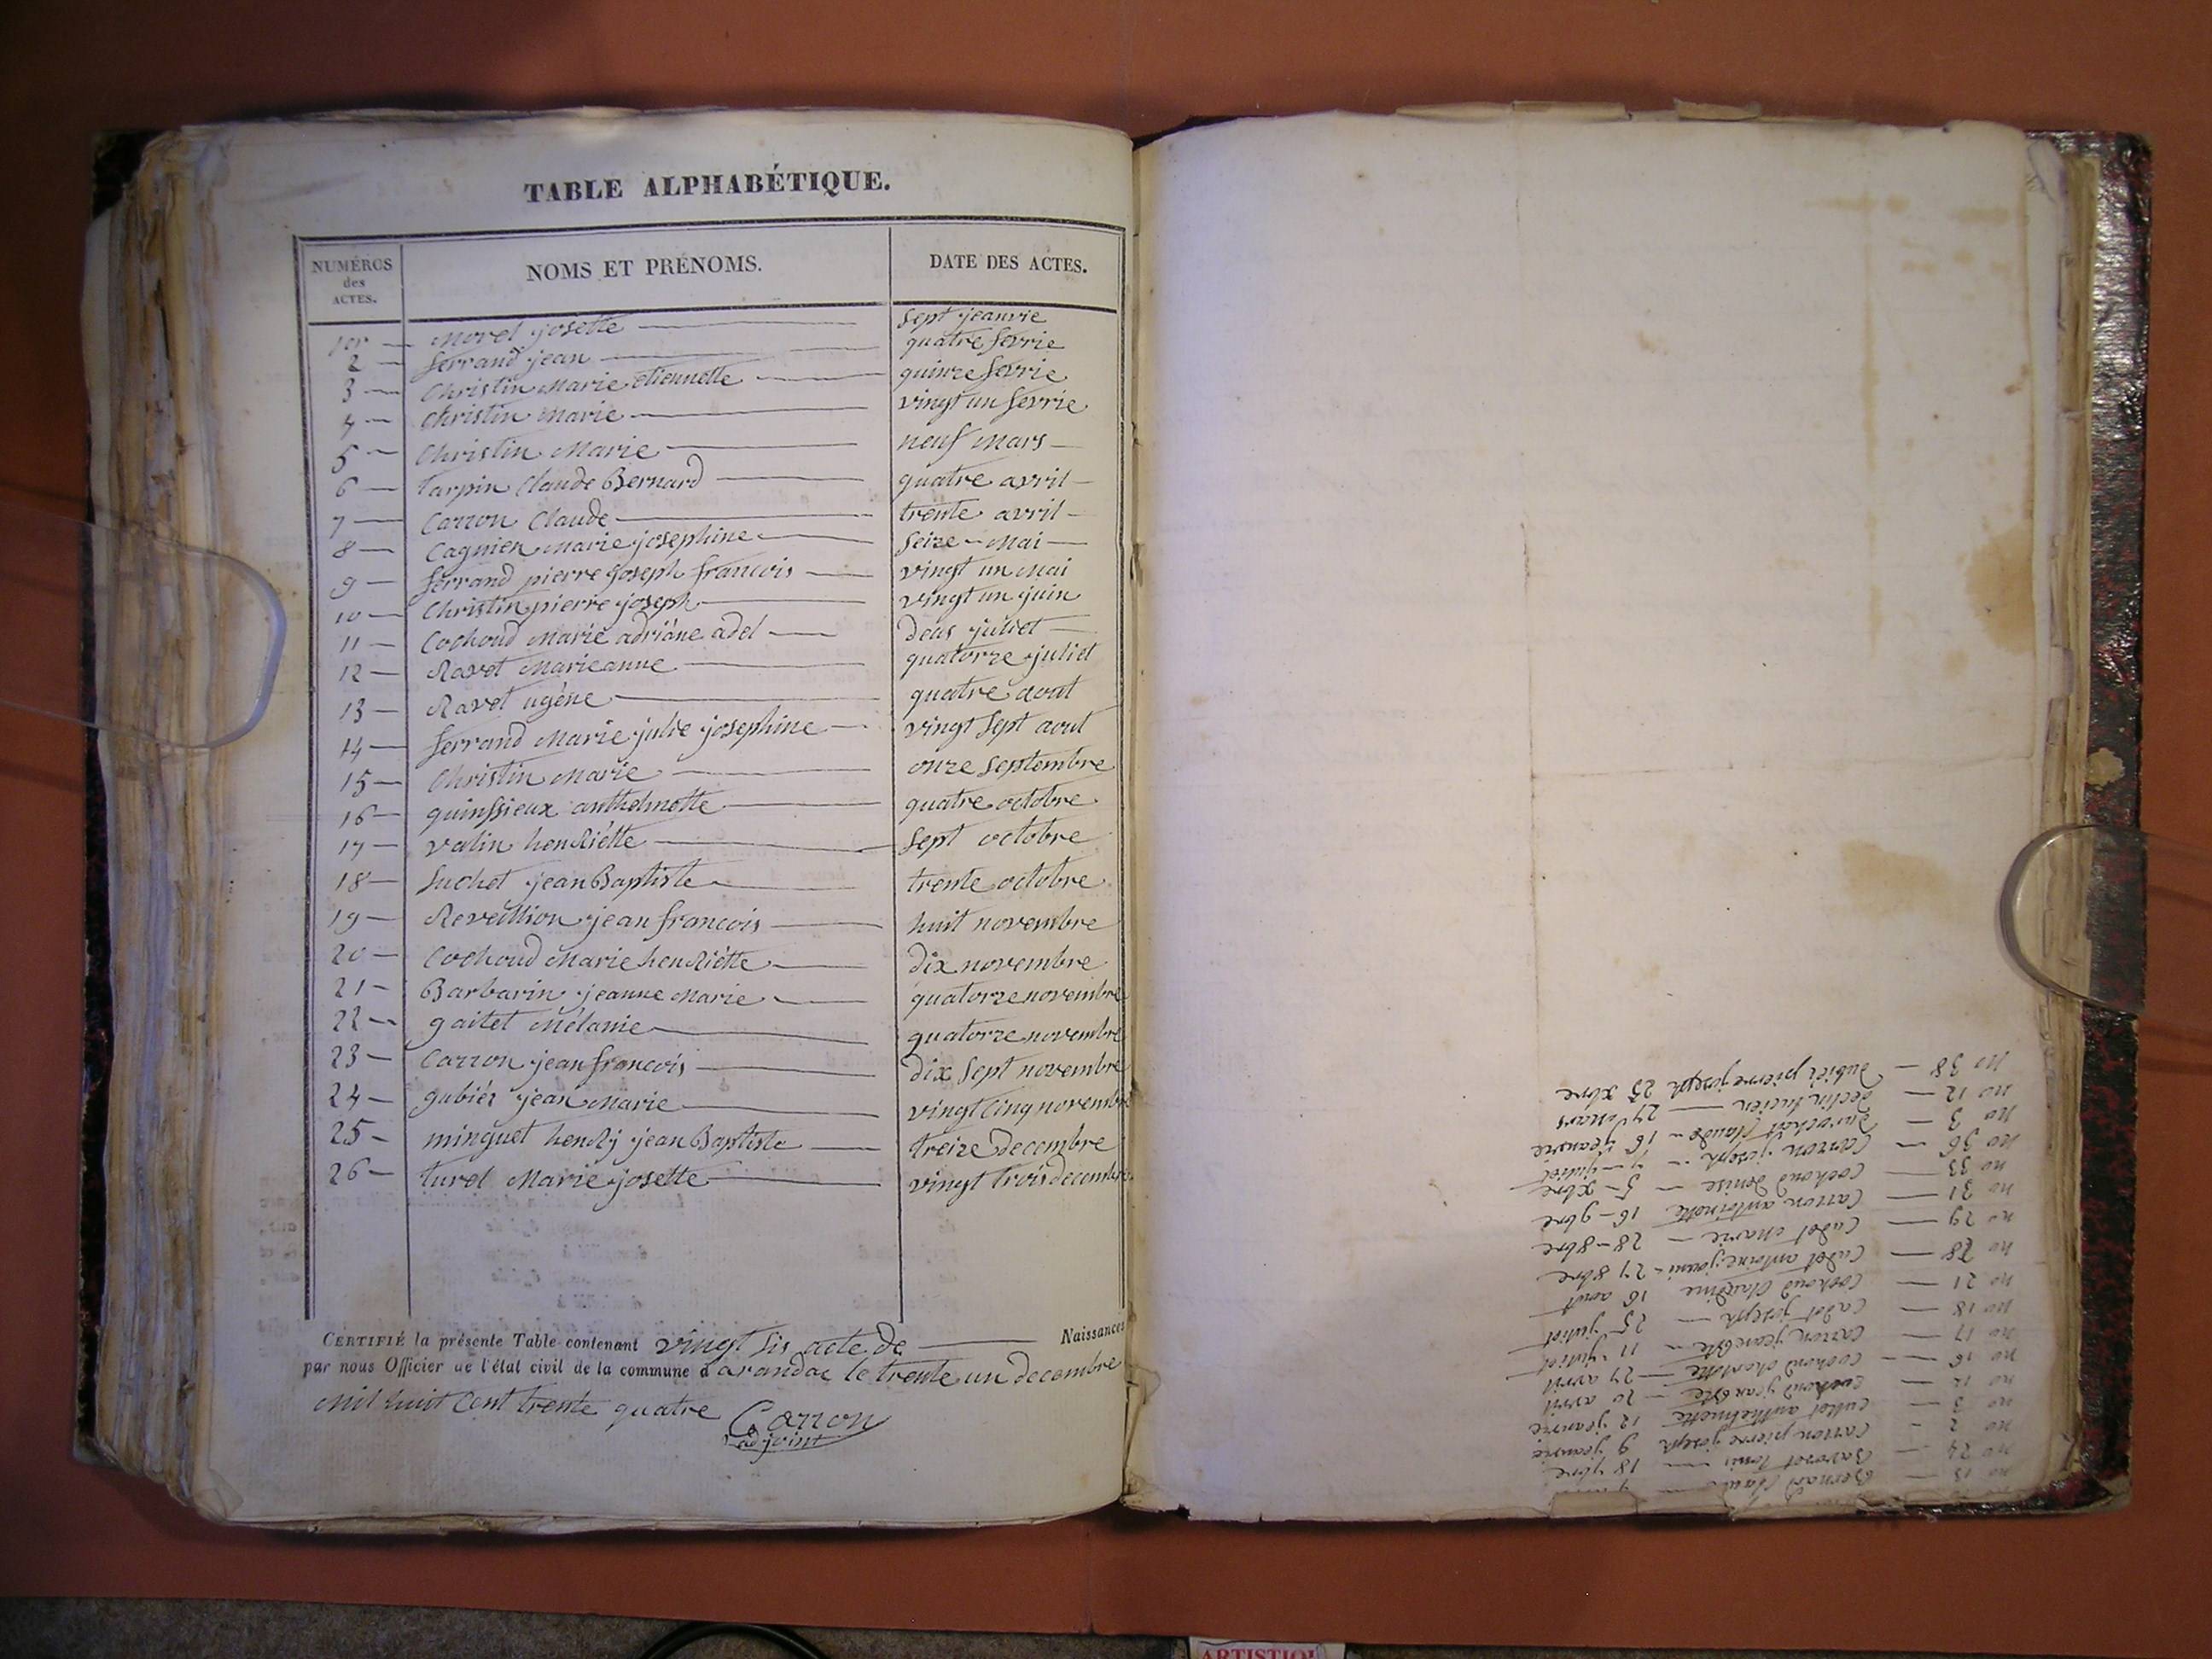 TABLE ALPHABÉTIQUE.
NUMÉROS des ACTES. NOMS ET PRÉNOMS. DATE DES ACTES.
1er — Morel josette — sept jeanvie
2 — ferrand jean — quatre fevrie
3 — Christin Marie etiennette — quinze fevrie
4 — Christin Marie — vingt un fevrie
5 — Christin Marie — neuf Mars —
6 — tarpin Claude Bernard — quatre avril —
7 — Carron Claude — trente avril —
8 — Cagnien Marie josephine — seize — Mai —
9 — ferrand pierre joseph francois — vingt un Mai
10 — Christin pierre joseph — vingt un juin
11 — Cochoud Marie adriáne adel — deus juliet —
12 — Ravet Marieanne — quatorze juliet
13 — Ravet ugéne — quatre aout
14 — ferrand Marie julie josephine — vingt sept aout
15 — Christin Marie — onze septembre
16 — quinssieux anthelmette — quatre octobre
17 — valin henRiétte — sept octobre
18 — suchet jean Baptiste — trente octobre
19 — Reveillion jean francois — huit novembre
20 — Cochoud Marie henRiétte — dix novembre
21 — Barbarin jeanne Marie — quatorze novembre
22 — gaitet Mélanie — quatorze novembre
23 — Carron jean francois — dix sept novembre
24 — gubiér jean Marie — vingt cinq novembre
25 — minguet henRj jean Baptiste — treize decembre
26 — turel Marie josette — vingt trois decembre
CERTIFIÉ la présente Table contenant vingt sis acte de — Naissances
par nous Officier de l'état civil de la commune d'arandas le trente un decembre
mil huit Cent trente quatre Carron
adjoint
no 13 — Bernard Claude —
no 24 — Bavoret Louis — 18 7bre
no 2 — Carron pierre joseph 9 jeanvie
no 3 — Cullet anthelmette 12 jeanvie
no 12 — Cochoud jean Bte — 20 avril
no 16 — Cochoud charlotte — 27 avril
no 17 — Carron jean Bte — 11 juliet
no 18 — Cadet joseph — 25 juliet
no 21 — Cochoud Claudine 16 aout
no 28 — Cadet antoine — 27 8bre
no 29 — Cadet Marie — 28 — 8bre
no 31 — Carron antoinette 16 — 9bre
no 33 — Cochoud denise — 5 — xbre
no 36 — Carron joseph — 7 — juliet
no 3 — durochat Claude — 16 jeanvie
no 12 — declin lucien — 27 Mars
no 38 — dubiéz pierre joseph 25 xbre
ARTISTIQU